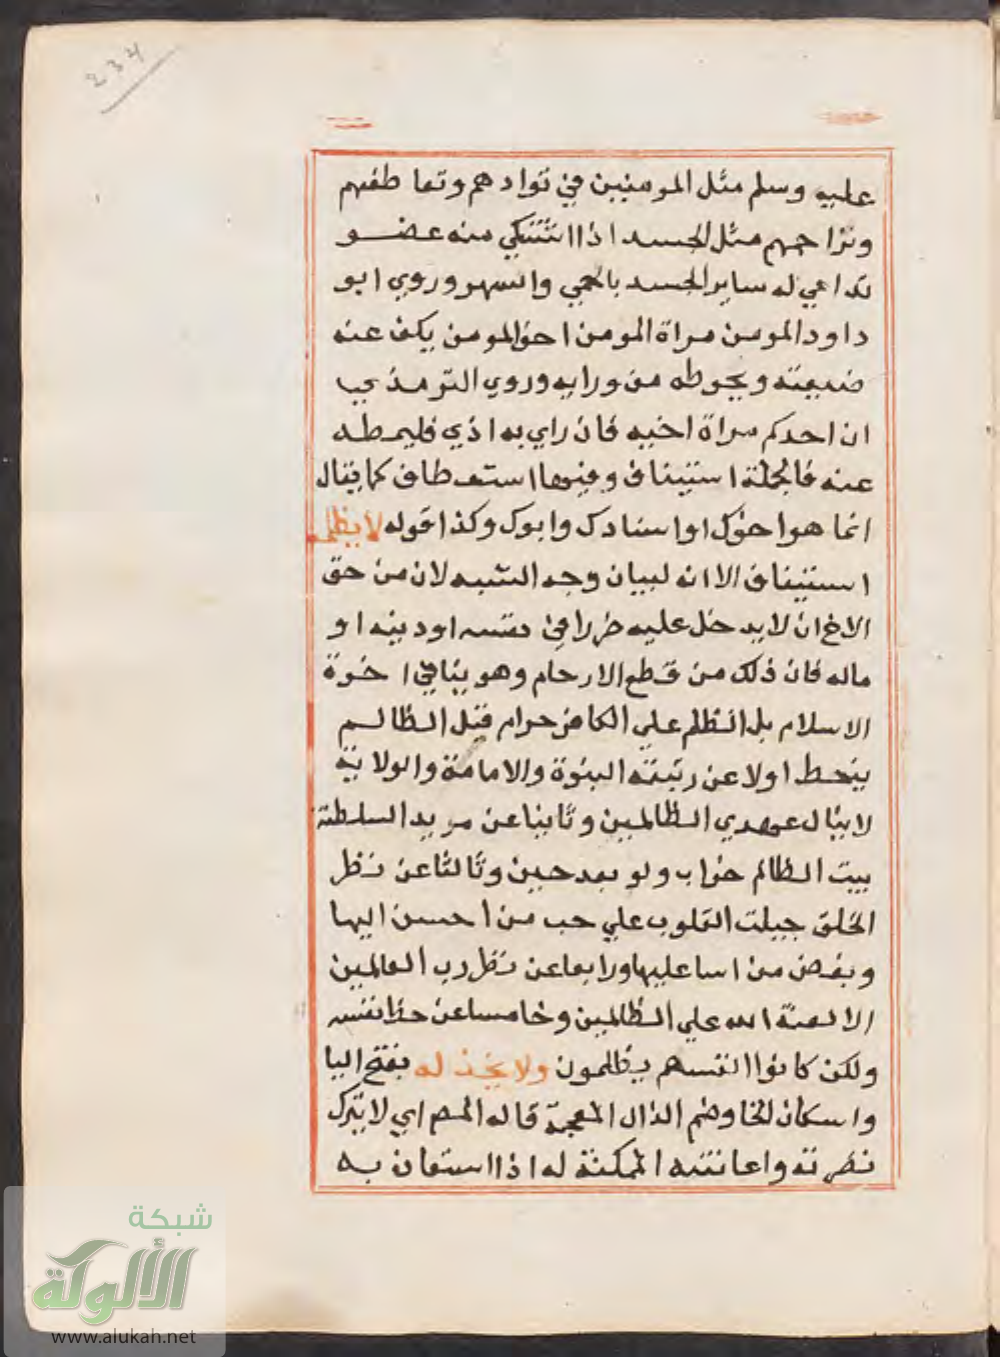 234
عليه وسلم مثل المومنين في توادهم وتعاطفهم
وتراحمهم مثل الجسد اذا اشتكي منه عضو
تداعي له ساير الجسد بالحمي والسهر وروي ابو
داود المومن مراة المومن اخو المومن يكف عنه
ضيعته ويحوطه من ورايه وروي الترمذي
ان احدكم مراة اخيه فان راي به اذي فليمطه
عنه فالجملة استيناف وفيها استعطاف كما يقال
انما هو اخوك او استادك وابوك وكذا قوله لا يظلمه
استيناف الا انه لبيان وجه الشبه لان من حق
الاخ ان لا يدخل عليه ضررا في نفسه او دينه او
ماله فان ذلك من قطع الارحام وهو ينافي اخوة
الاسلام بل الظلم علي الكافر حرام قيل الظالم
ينحط اولا عن رتبته النبوة والامامة والولاية
لا ينال عهدي الظالمين وثانيا عن مريد السلطنة
بيت الظالم خراب ولو بعد حين وثالثا عن نظر
الخلق جبلت القلوب علي حب من احسن اليها
وبغض من اسا عليها ورابعا عن نظر رب العالمين
الا لعنة الله علي الظالمين وخامسا عن حظ نفسه
ولكن كانوا انفسهم يظلمون ولا يخذله بفتح اليا
واسكان الخا وضم الذال المعجمة قاله المص اي لا يترك
نصرته واعانته الممكنة له اذا استعان به
شبكة
الألوكة
www.alukah.net